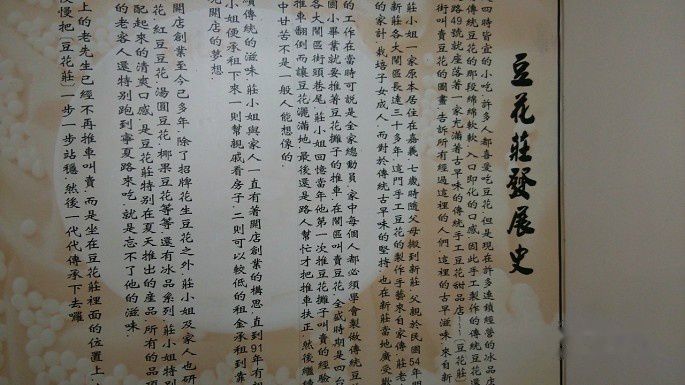 豆花莊發展史
四時皆宜的小吃,許多人都喜愛吃豆花,但是現在許多連鎖經營的冰品店
傳統豆花的那段綿綿軟軟,入口即化的口感,因此手工製作的傳統豆花還
路49號就座落著一家充滿著古早味的傳統手工豆花甜品店
街叫賣豆花的圖畫,告訴所有經過這裡的人們,這裡的古早滋味,來自新
莊小姐一家原本居住在嘉義,七歲時隨父母搬到新莊,父親於民國54年開
新莊各大鬧區長達三十多年,這門手工豆花的製作手藝來自家傳
的家計,栽培子女成人,而對於傳統古早味的堅持,也在新莊當地廣受歡
的工作在當時可說是全家總動員,家中每個人都必須學會製做傳統豆
國小畢業就要推著豆花攤子的推車,在鬧區叫賣豆花,全盛時期是四台
各大鬧區街頭巷尾,莊小姐回憶當年他第一次推豆花攤子叫賣的經驗
推車翻倒而讓豆花灑滿地,最後還是路人幫忙才把推車扶正,然後繼續
中甘苦不是一般人能想像的.
續傳統的滋味,莊小姐與家人一直有著開店創業的構思,直到91年有親
小姐便承租下來,一則幫親戚看房子,二則可以較低的租金承租到靠
完開店的夢想.
開店創業至今已多年,除了招牌花生豆花之外,莊小姐及家人也研
花,紅豆豆花,湯圓豆花,椰果豆花等等,還有冰品系列,莊小姐特別
配起來的清爽口感,是豆花莊特別在夏天推出的產品,所有的品項
的老客人還特別跑到寧夏路來吃,就是忘不了他的滋味.
上的老先生已經不再推車叫賣,而是坐在豆花莊裡面的位置上,
慢慢把[豆花莊]一步一步站穩,然後一代代傳承下去囉